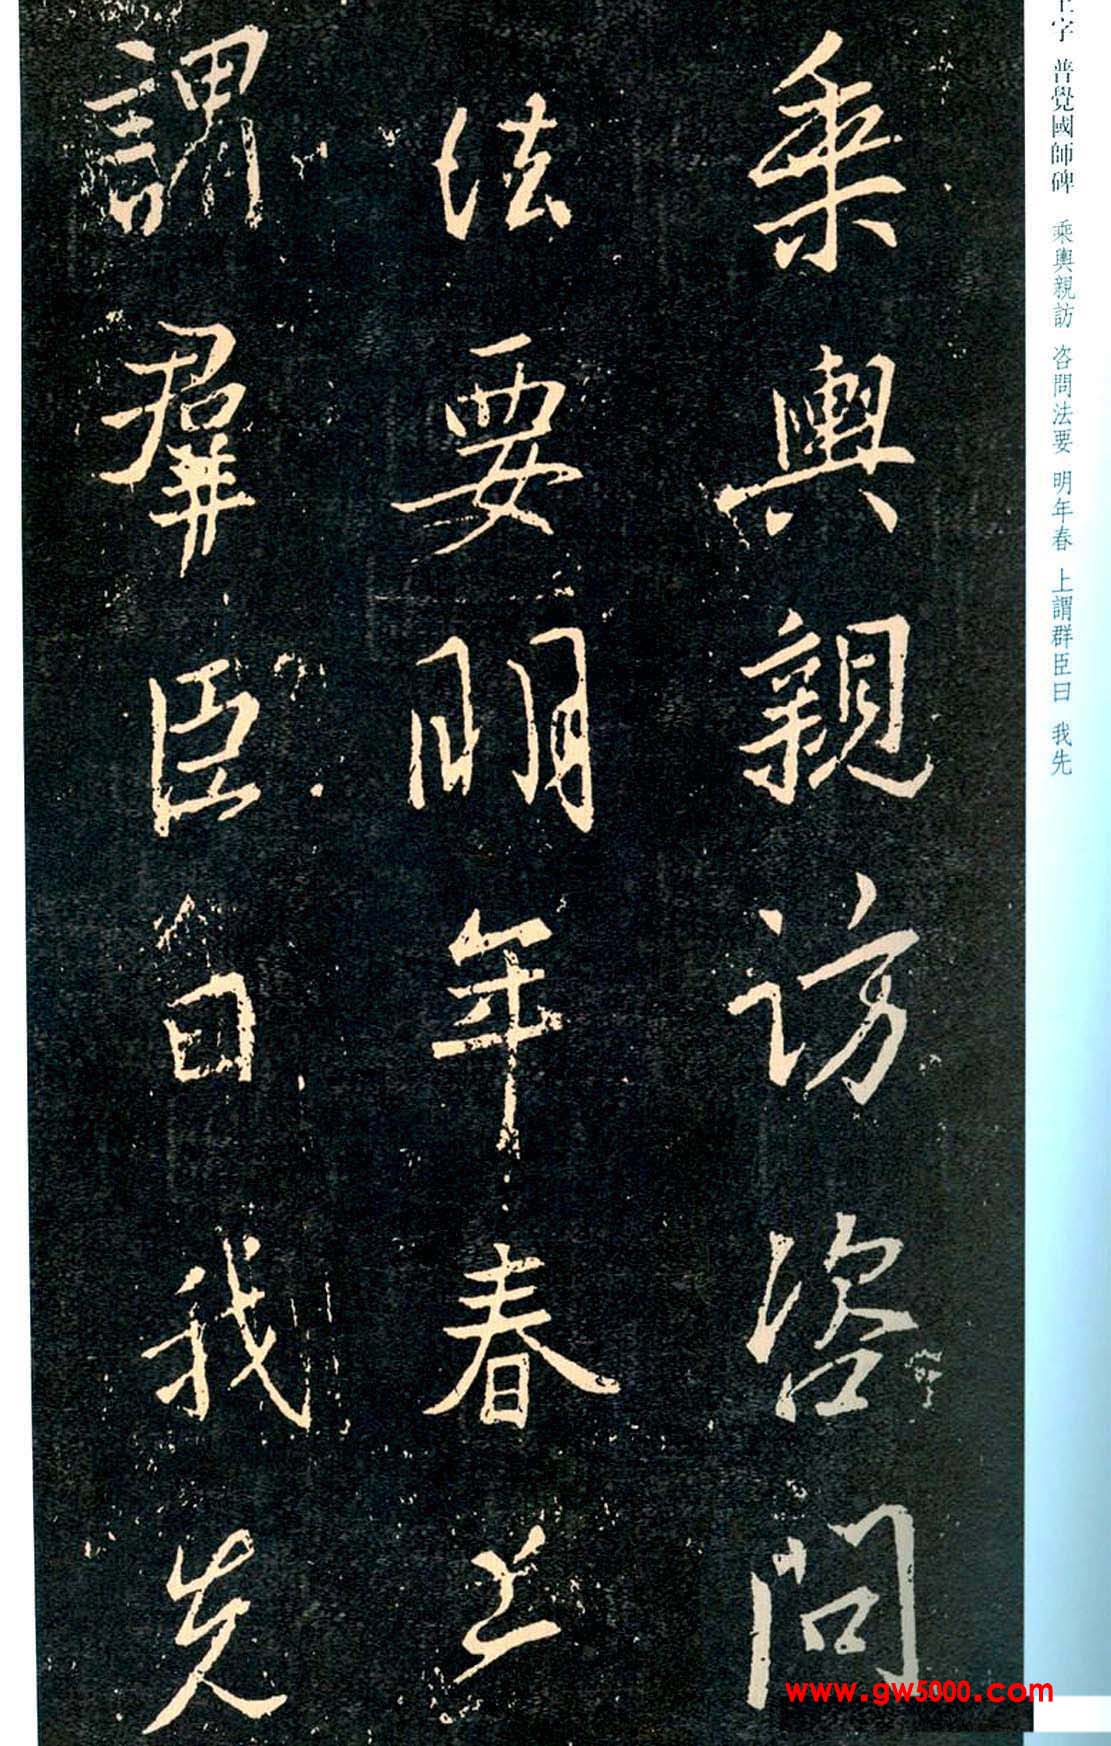 乘輿親訪咨問
法要明年春上
謂羣臣曰我先
王字 普覺國師碑 乘輿親訪 咨問法要 明年春 上謂群臣曰 我先
www.gw5000.com